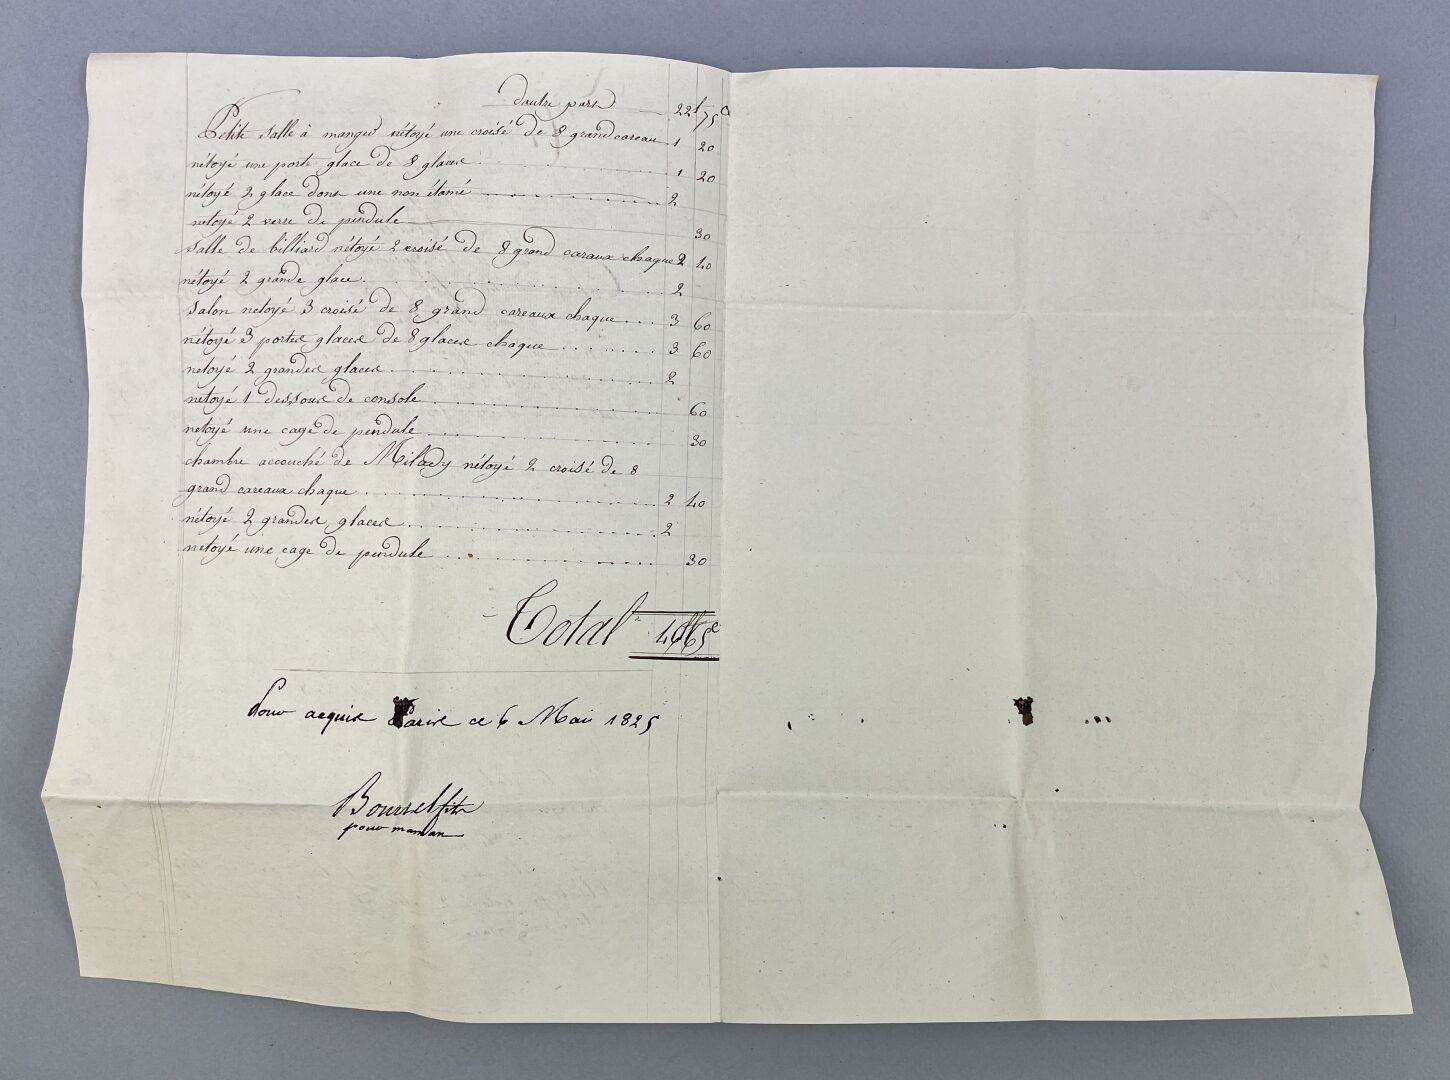 dautre part 22f 75c
Petite salle à manger nétoyé une croisé de 8 grand careau 1 20
nétoyé une porte glace de 8 glaces 1 20
nétoyé 2 glace dont une non étamé 2
netoyé 2 verre de pendule 30
salle de billiard nétoyé 2 croisé de 8 grand caraux chaque 2 40
nétoyé 2 grande glace 2
salon netoyé 3 croisé de 8 grand careaux chaque 3 60
nétoyé 3 portes glaces de 8 glaces chaque 3 60
netoyé 2 grandes glaces 2
netoyé 1 dessous de console 60
netoyé une cage de pendule 30
chambre accouché de Milady nétoyé 2 croisé de 8
grand careaux chaque 2 40
nétoyé 2 grandes glaces 2
netoyé une cage de pendule 30
Total
Pour acquis Paris ce 6 Mai 1825
pour maman